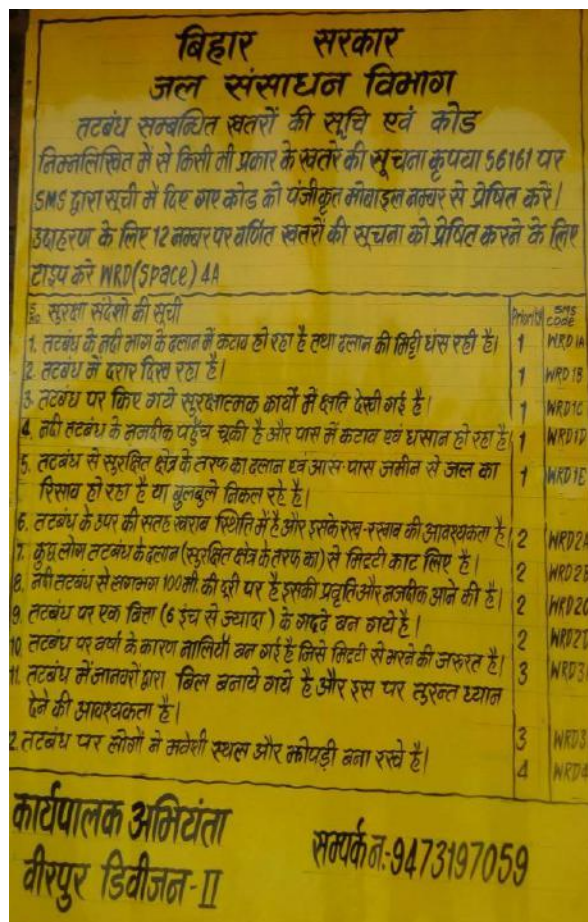 बिहार सरकार
जल संसाधन विभाग
तटबंध सम्बन्धित खतरों की सूचि एवं कोड
निम्नलिखित में से किसी भी प्रकार के खतरे की सूचना कृपया 56161 पर
SMS द्वारा सूची में दिए गए कोड को पंजीकृत मोबाइल नम्बर से प्रेषित करें।
उदाहरण के लिए 12 नम्बर पर वर्णित खतरों की सूचना को प्रेषित करने के लिए
टाइप करे WRD(Space) 4A
सुरक्षा संदेशो की सूची Priority SMS CODE
1. तटबंध के नदी भाग के ढलान में कटाव हो रहा है तथा ढलान की मिट्टी धंस रही है। 1 WRD 1A
2. तटबंध में दरार दिख रहा है। 1 WRD 1B
3. तटबंध पर किए गये सुरक्षात्मक कार्यो में क्षति देखी गई है। 1 WRD 1C
4. नदी तटबंध के नजदीक पहुँच चूकी है और पास में कटाव एवं धसान हो रहा है। 1 WRD 1D
5. तटबंध से सुरक्षित क्षेत्र के तरफ का ढलान एवं आस-पास जमीन से जल का 1 WRD 1E
रिसाव हो रहा है या बुलबुले निकल रहे है।
6. तटबंध के उपर की सतह खराब स्थिति में है और इसके रख-रखाव की आवश्यकता है। 2 WRD 2A
7. कुछ लोग तटबंध के ढलान (सुरक्षित क्षेत्र के तरफ का) से मिटटी काट लिए है। 2 WRD 2B
8. नदी तटबंध से लगभग 100 मी. की दूरी पर है इसकी प्रवृति और नजदीक आने की है। 2 WRD 2C
9. तटबंध पर एक बित्ता (6 इंच से ज्यादा) के गढदे बन गये है। 2 WRD 2D
10. तटबंध पर वर्षा के कारण नालियाँ बन गई है जिसे मिटटी से भरने की जरुरत है। 3 WRD 3
11. तटबंध में जानवरों द्वारा बिल बनाये गये है और इस पर तुरन्त ध्यान
देने की आवश्यकता है। 3 WRD 3
2. तटबंध पर लोगों ने मवेशी स्थल और झोपड़ी बना रखे है। 4 WRD 4
कार्यपालक अभियंता
वीरपुर डिवीजन-II
सम्पर्क न.-9473197059